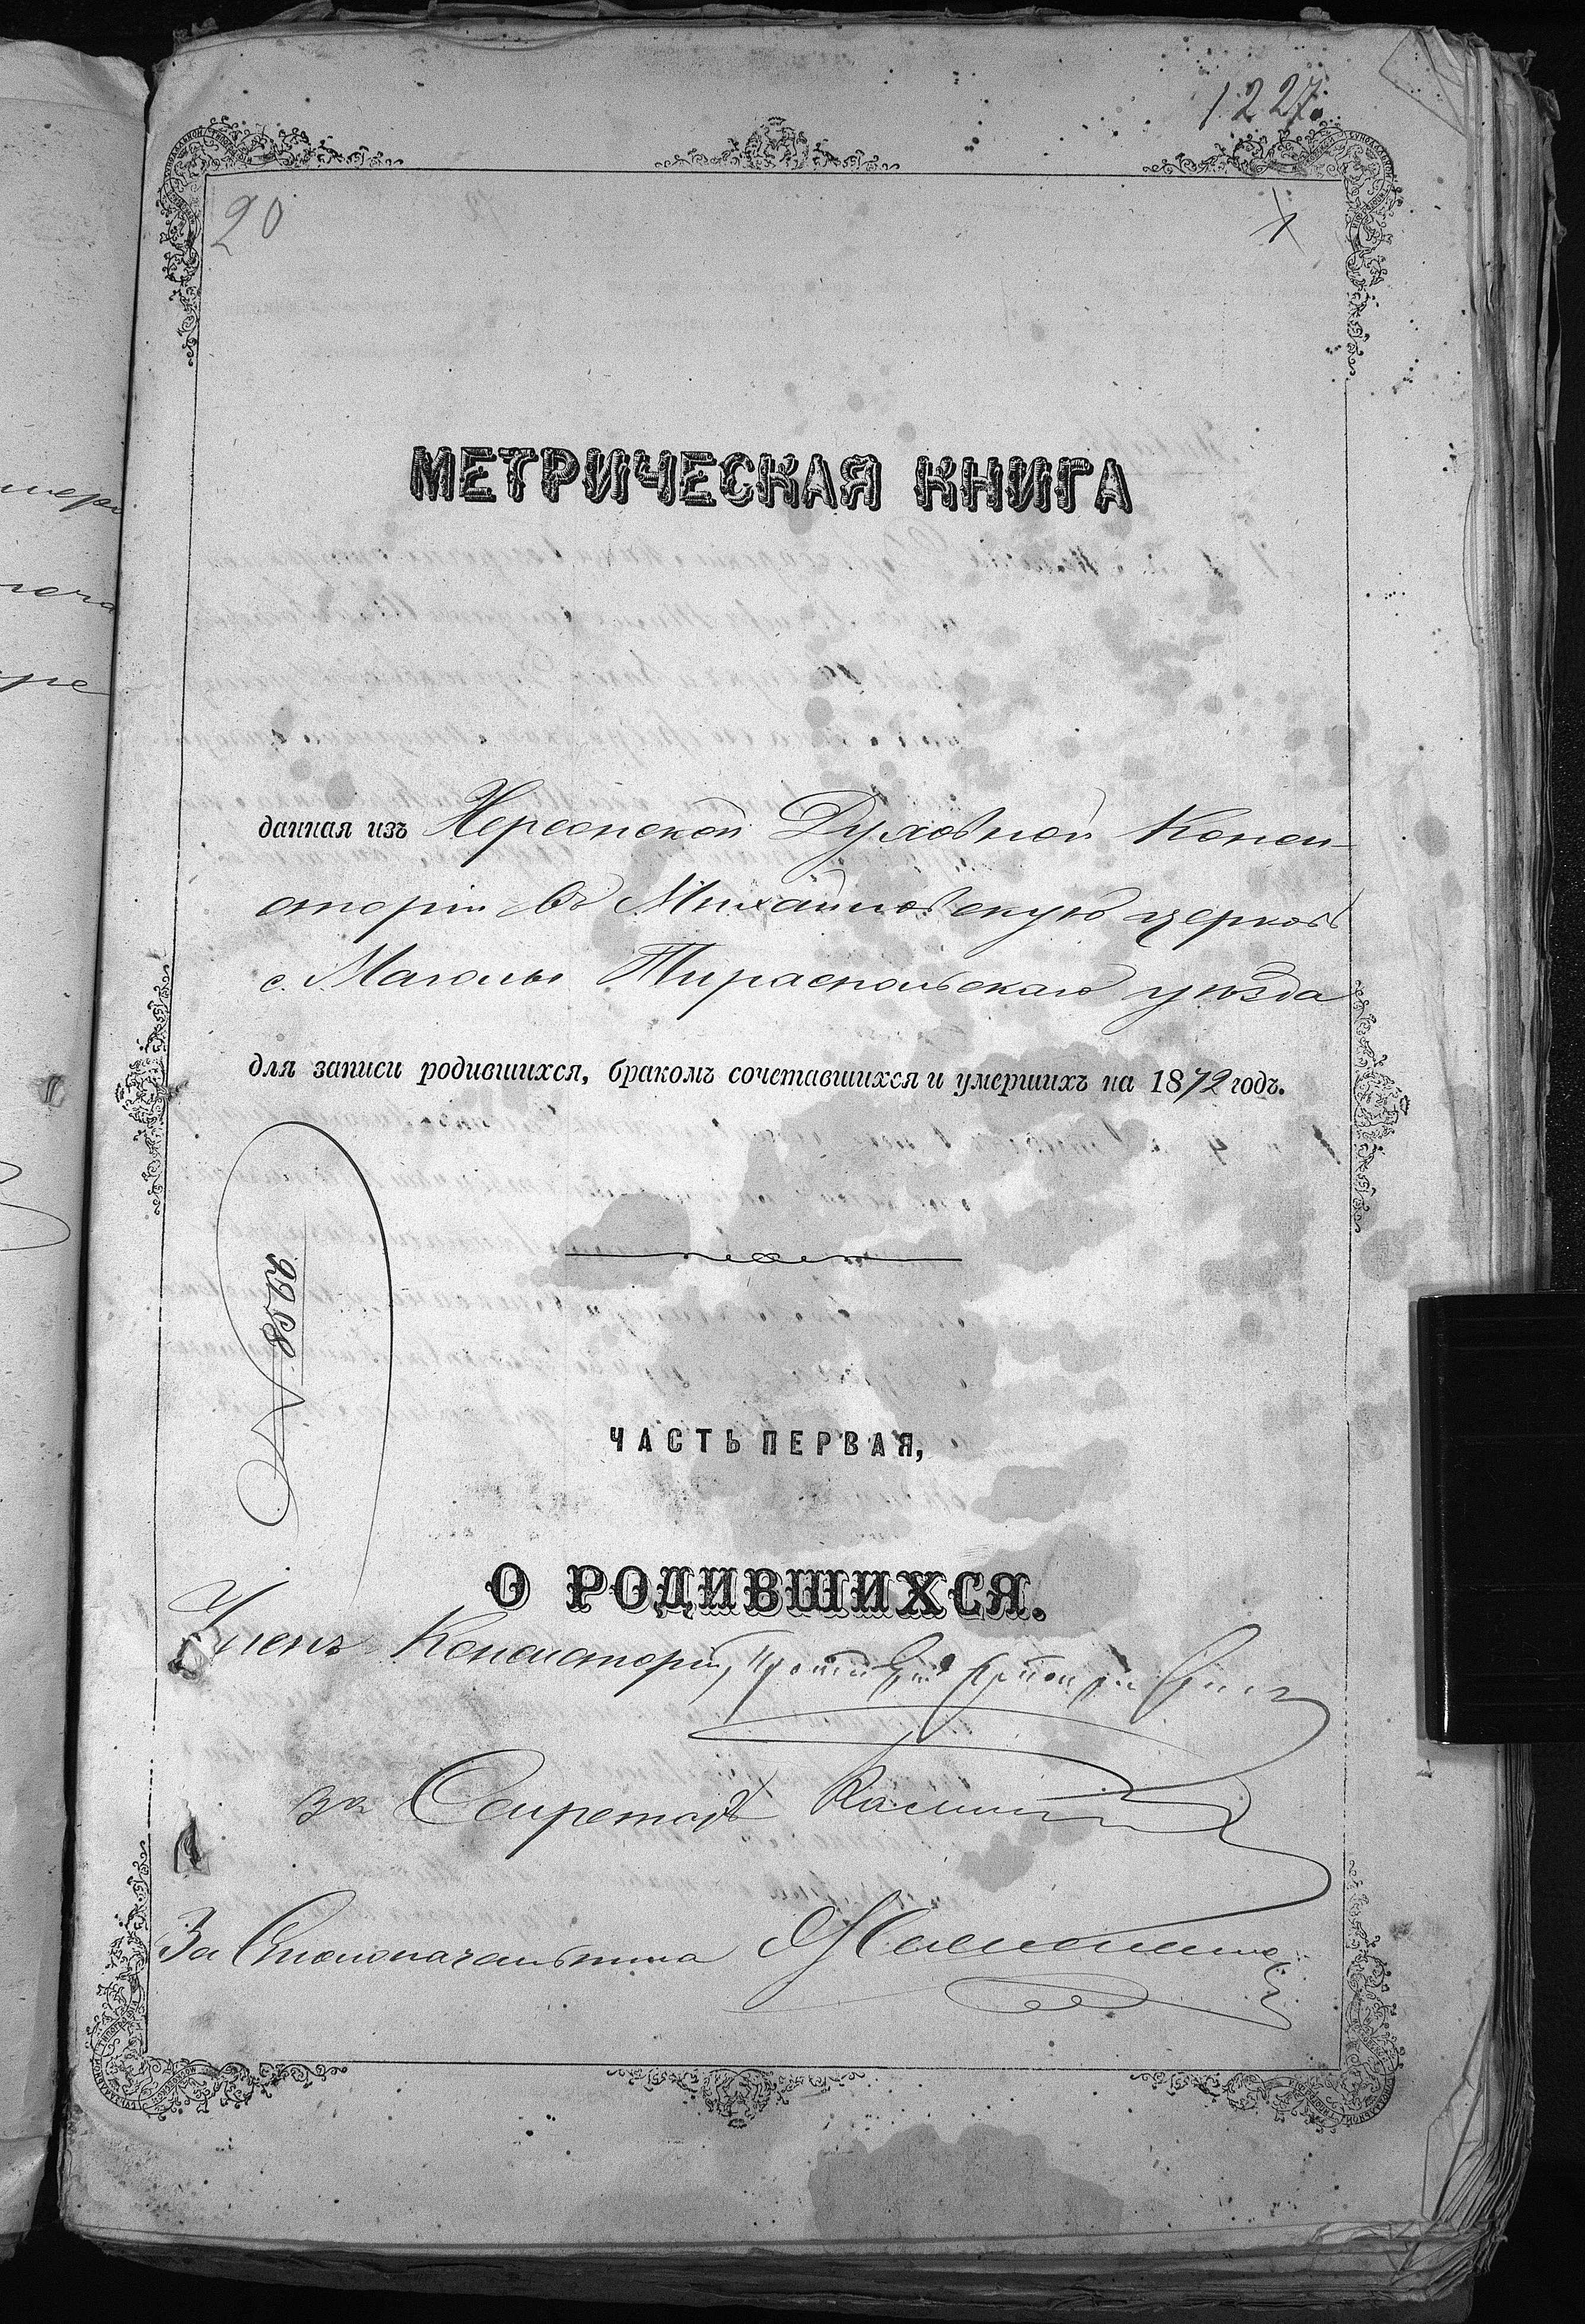 1227.
20
МЕТРИЧЕСКАЯ КНИГА
данная изъ Херсонской Духовной Конси-
сторіи въ Михайловскую церковь
с. Маголы Тираспольскаго уѣзда
для записи родившихся, бракомъ сочетавшихся и умершихъ на 1872 годъ.
№ 2968
ЧАСТЬ ПЕРВАЯ,
О РОДИВШИХСЯ.
Членъ Консисторіи,
за Секретаря
За Столоначальника